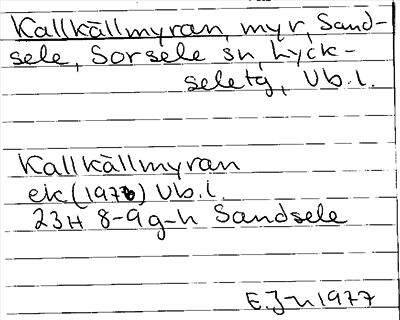 Kallkällmyran, myr, Sand-
sele, Sorsele sn, Lyck-
seletg, Vb.l.
Kallkällmyran
ek (1976) Vb.l.
23H 8-9g-h Sandsele
E.J-n 1977